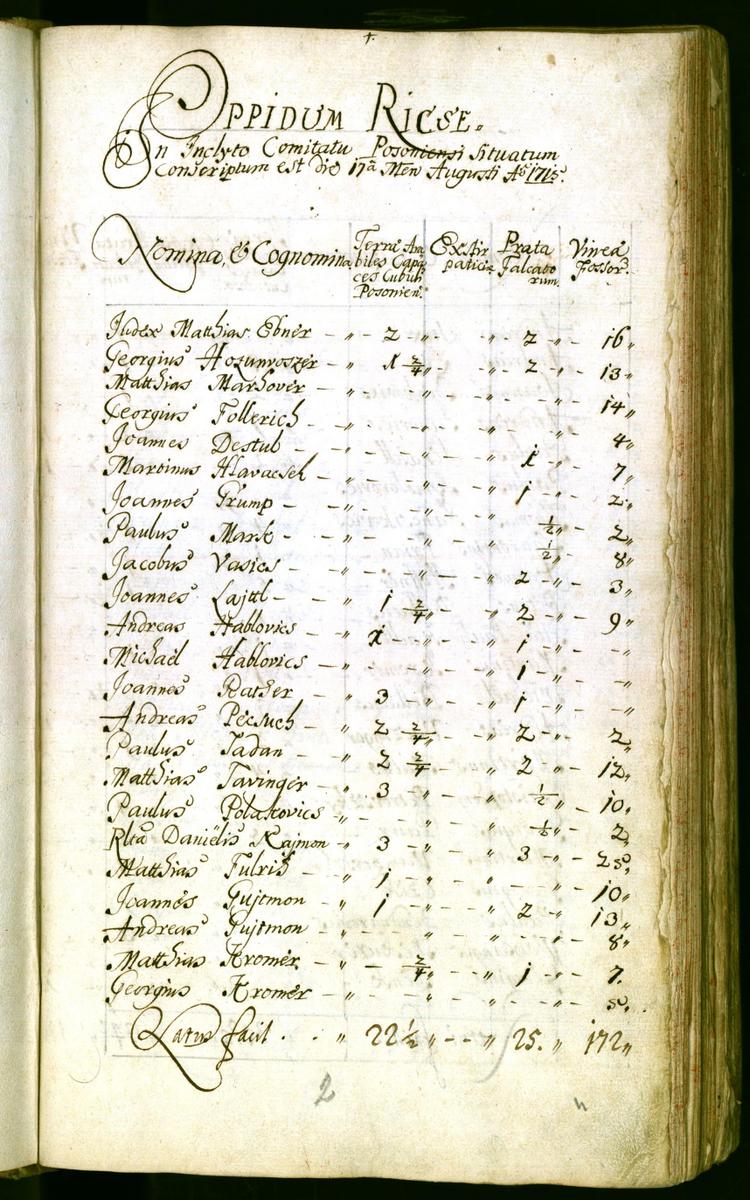 OPPIDUM RICSE.
In Inclyto Comitatu Posoniensi Situatum
Conscriptum est die 17â Men Augusti Aô 1715.
Nomina, & Cognomina Terrae Ara Extir Prata Vinea
biles Capa patitiae Falcato Fossor.
ces Cubuli rum.
Posonien.
Judex Matthias Ebner - " 2 " - " 2 " - 16 "
Georgius - " 1 2/4 " - " 2 " - 13 "
Matthias Marhover - " - " - " - " - 14 "
Georgius Follerich - " - " - " - " - 4 "
Joannes Destub - " - " - " 1 - " - 7 "
Martinus Hlavacseh - " - " - " 1 - " - 2 "
Joannes Grump - " - " - " 1/2 " - 2 "
Paulus Mark - " - " - " 1/2 " - 8 "
Jacobus Vasics - " - " - " 2 - " - 3 "
Joannes Lajttl - " 1 2/4 " - " 2 - " - 9 "
Andreas Hablovics - " 1 - " - " 1 - " - "
Michaël Hablovics - " - " - " 1 - " - "
Joannes Rather - " 3 - " - " 1 - " - "
Andreas Pecsuch - " 2 2/4 " - " 2 - " - 2 "
Paulus Tadan - " 2 2/4 " - " 2 - " - 12 "
Matthias Tavinger - " 3 - " - " 1/2 " - 10 "
Paulus Polakovics - " - " - " 1/2 " - 2 "
Rlta Daniëlis Kajmon - " 3 - " - " 3 - " - 25 "
Matthias Fulrih - " 1 - " - " - " - 10 "
Joannes Gujtmon - " 1 - " - " 2 - " - 13 "
Andreas Gujtmon - " - " - " - " - 8 "
Matthias Kromer - " - 2/4 " - " 1 - " - 7 "
Georgius Kromer - " - " - " - " - 5 "
Latus facit . . " 22 1/2 " - - " 25. " 172 "
2